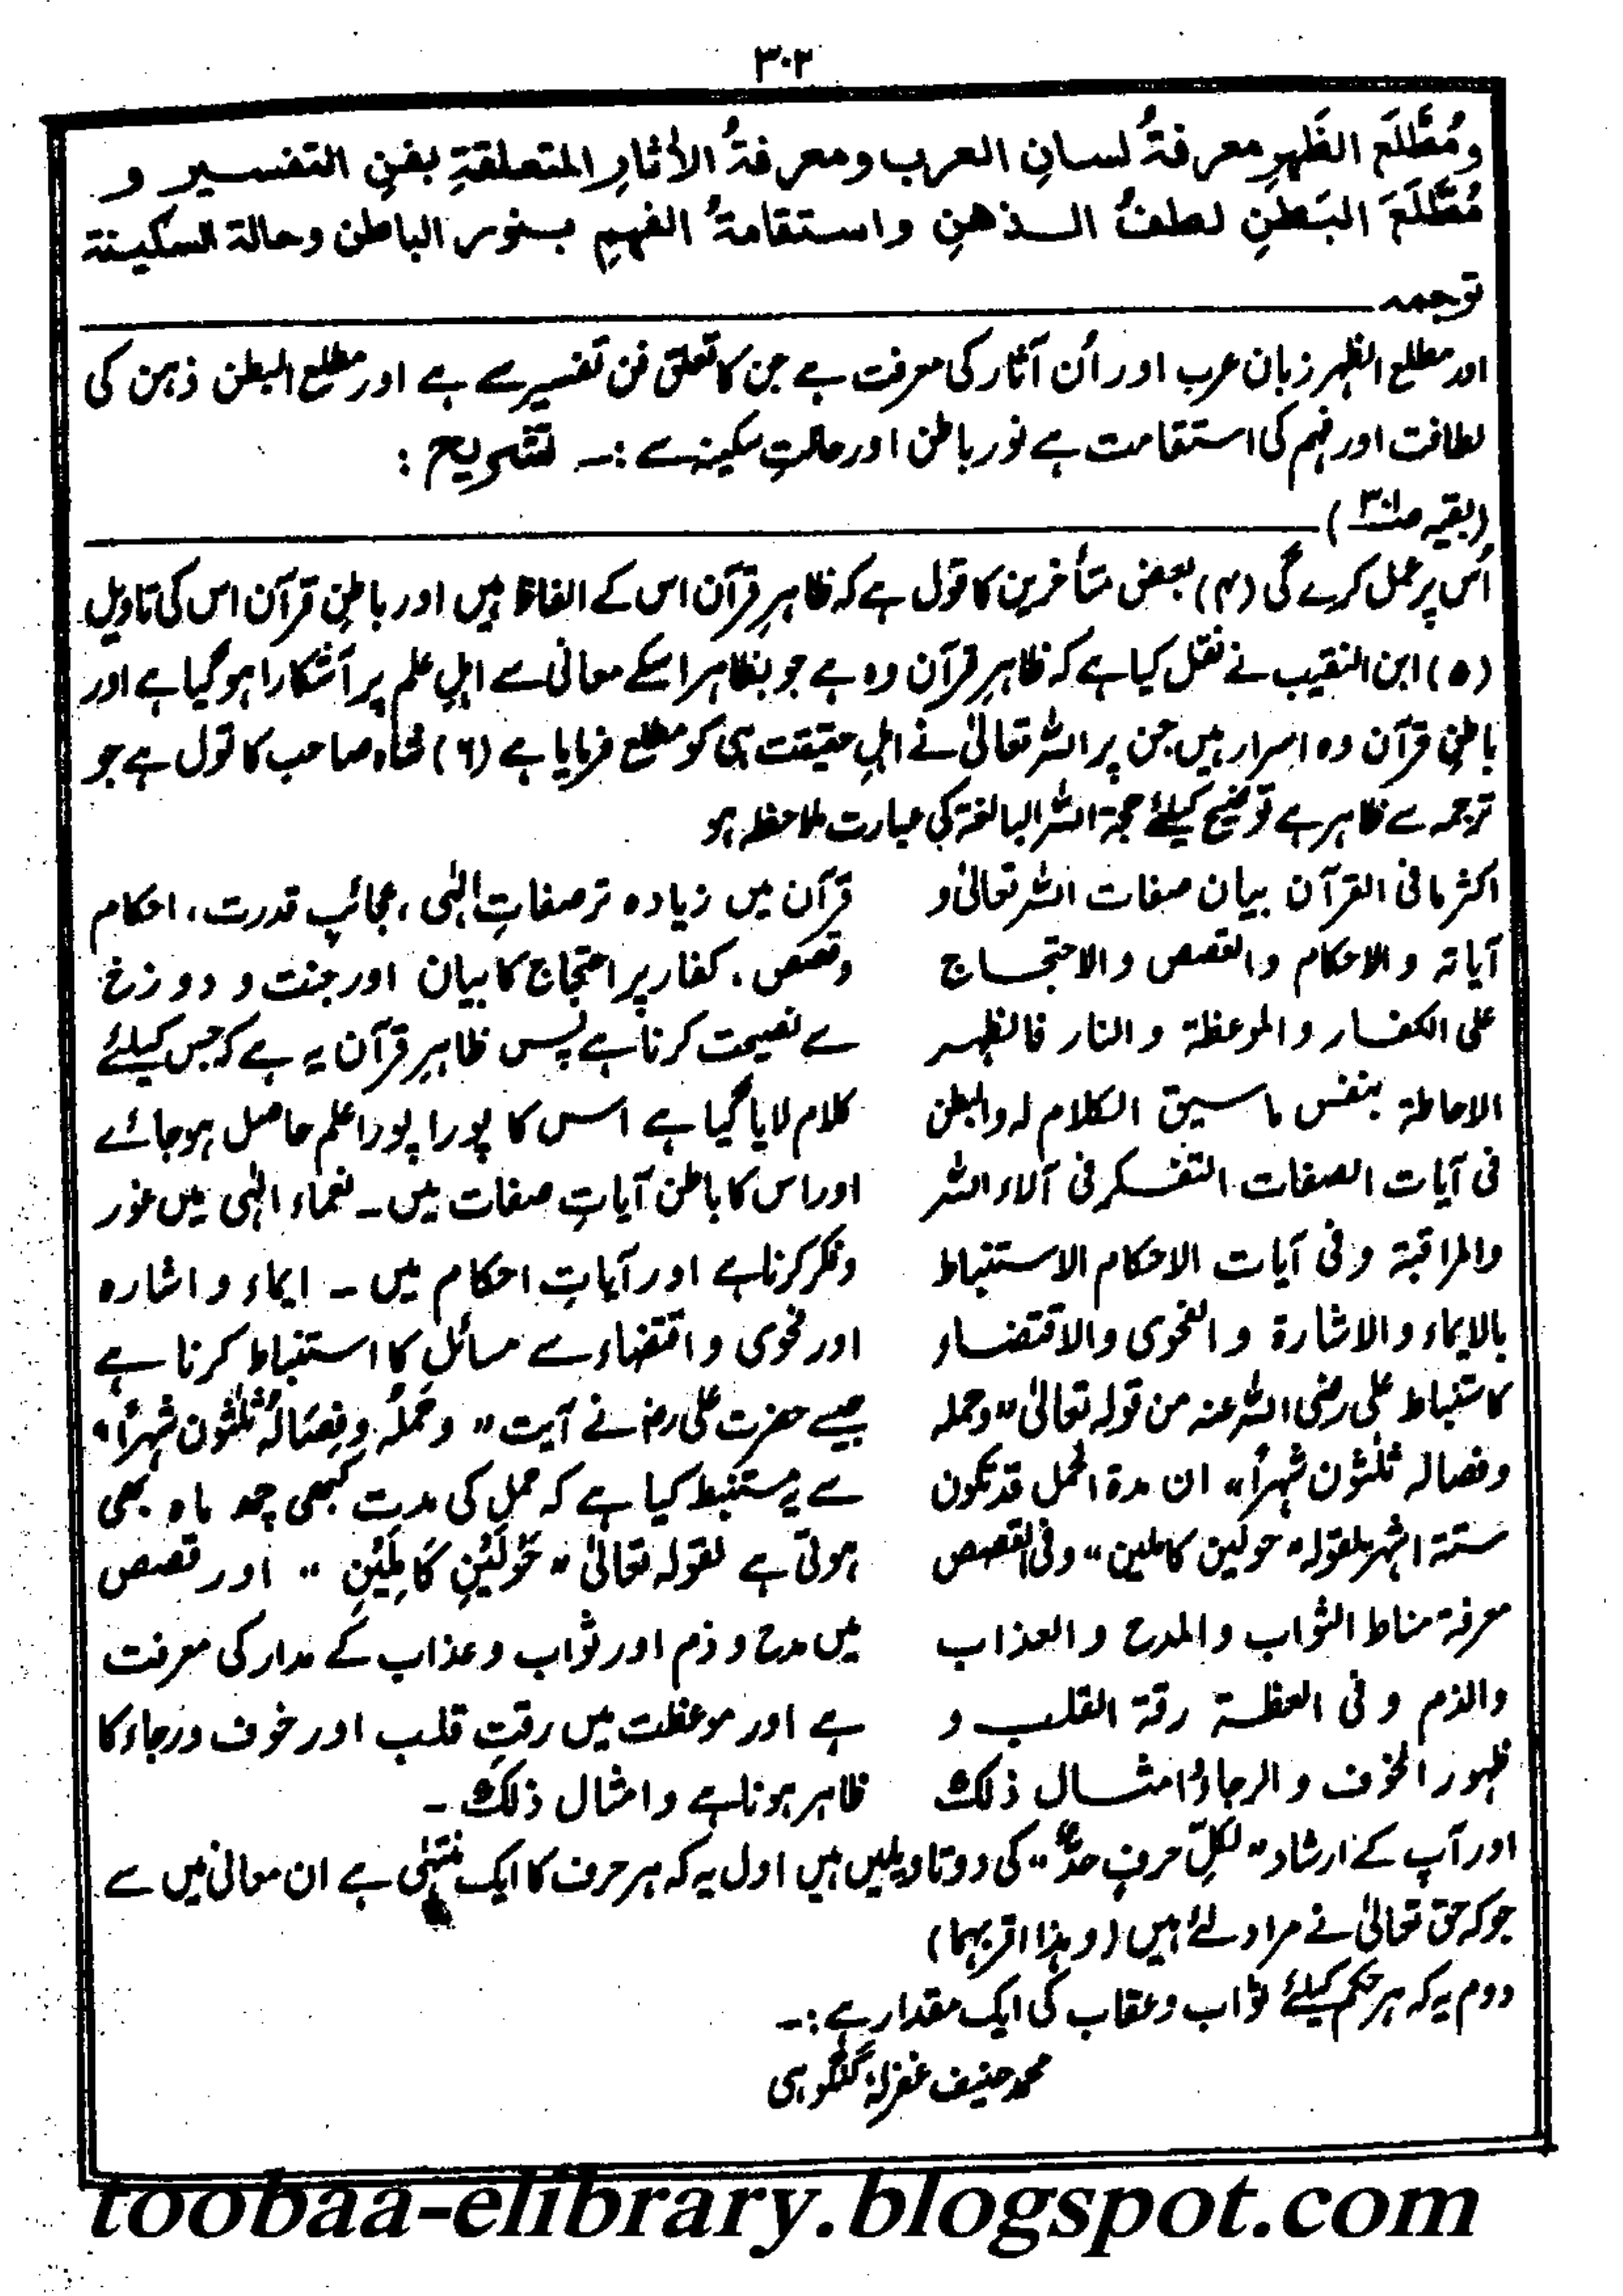 ٣٠٢
ومُطَّلَعَ الظَهرِ معرفةُ لسانِ العرب ومعرفةُ الأثارِ المتعلقةِ بفنِ التفسير و
مُطَّلَعَ البَطنِ لطفُ الذهنِ واستقامةُ الفهمِ بنور الباطن وحالة السكينة
ترجمہ
اور مطلع الظہر زبان عرب اور اُن آثار کی معرفت ہے جن کا تعلق فن تفسیر سے ہے اور مطلع البطن ذہن کی
لطافت اور فہم کی استقامت ہے نور باطن اور حالتِ سکینہ سے :۔ تشریح :
(بقیہ صـ٣٠١)
اُس پر عمل کرے گی (۴) بعض متأخرین کا قول ہے کہ ظاہرِ قرآن اس کے الفاظ ہیں اور باطنِ قرآن اس کی تاویل
(۵) ابن النقیب نے نقل کیا ہے کہ ظاہرِ قرآن وہ ہے جو بظاہر اسکے معانی سے اہلِ علم پر آشکارا ہو گیا ہے اور
باطنِ قرآن وہ اسرار ہیں جن پر اللہ تعالیٰ نے اہلِ حقیقت ہی کو مطلع فرمایا ہے (۶) شاہ صاحب کا قول ہے جو
ترجمہ سے ظاہر ہے توضیح کیلئے حجۃ اللہ البالغۃ کی عبارت ملاحظہ ہو
اکثر مافی القرآن بیان صفات اللہ تعالیٰ و
آیاتہ والاحکام والقصص والاحتجاج
علی الکفار والموعظۃ والنار فالظہر
الاحاطۃ بنفس ما سیق الکلام لہ والبطن
فی آیات الصفات التفکر فی آلاء اللہ
والمراقبۃ وفی آیات الاحکام الاستنباط
بالایماء والاشارۃ والفحوی والاقتضاء
کاستنباط علی رضی اللہ عنہ من قولہ تعالیٰ "وحملہ
وفصالہ ثلٰثون شہراً" ان مدۃ الحمل قد تکون
ستۃ اشہر لقولہ "حولین کاملین" وفی القصص
معرفۃ مناط الثواب والمدح والعذاب
والذم وفی العظۃ رقۃ القلب و
ظہور الخوف والرجاء وامثال ذلک
قرآن میں زیادہ تر صفاتِ الٰہی، عجائبِ قدرت، احکام
وقصص، کفار پر احتجاج کا بیان اور جنت و دوزخ
سے نصیحت کرنا ہے پس ظاہرِ قرآن یہ ہے کہ جس کیلئے
کلام لایا گیا ہے اس کا پورا پورا علم حاصل ہو جائے
اور اس کا باطن آیاتِ صفات میں۔ نعماء الٰہی میں غور
وفکر کرنا ہے اور آیاتِ احکام میں ۔ ایماء و اشارہ
اور فحوی و اقتضاء سے مسائل کا استنباط کرنا ہے
جیسے حضرت علی رضؓ نے آیت "وحَملُہٗ وفِصَالُہٗ ثَلٰثُون شَہراً"
سے یہ مستنبط کیا ہے کہ حمل کی مدت کبھی چھ ماہ بھی
ہوتی ہے لقولہ تعالیٰ "حَوْلَیْنِ کَامِلَیْنِ" اور قصص
میں مدح و ذم اور ثواب و عذاب کے مدار کی معرفت
ہے اور موعظت میں رقتِ قلب اور خوف و رجاء کا
ظاہر ہونا ہے وامثال ذلک ۔
اور آپ کے ارشاد "لکلِّ حرفٍ حدٌّ" کی دو تاویلیں ہیں اول یہ کہ ہر حرف کا ایک منتہٰی ہے ان معانی میں سے
جو کہ حق تعالیٰ نے مراد لئے ہیں (وہذا اقربہما)
دوم یہ کہ ہر حکم کیلئے ثواب و عقاب کی ایک مقدار ہے :۔
محمد حنیف غفرلہٗ گنگوہی
toobaa-elibrary.blogspot.com